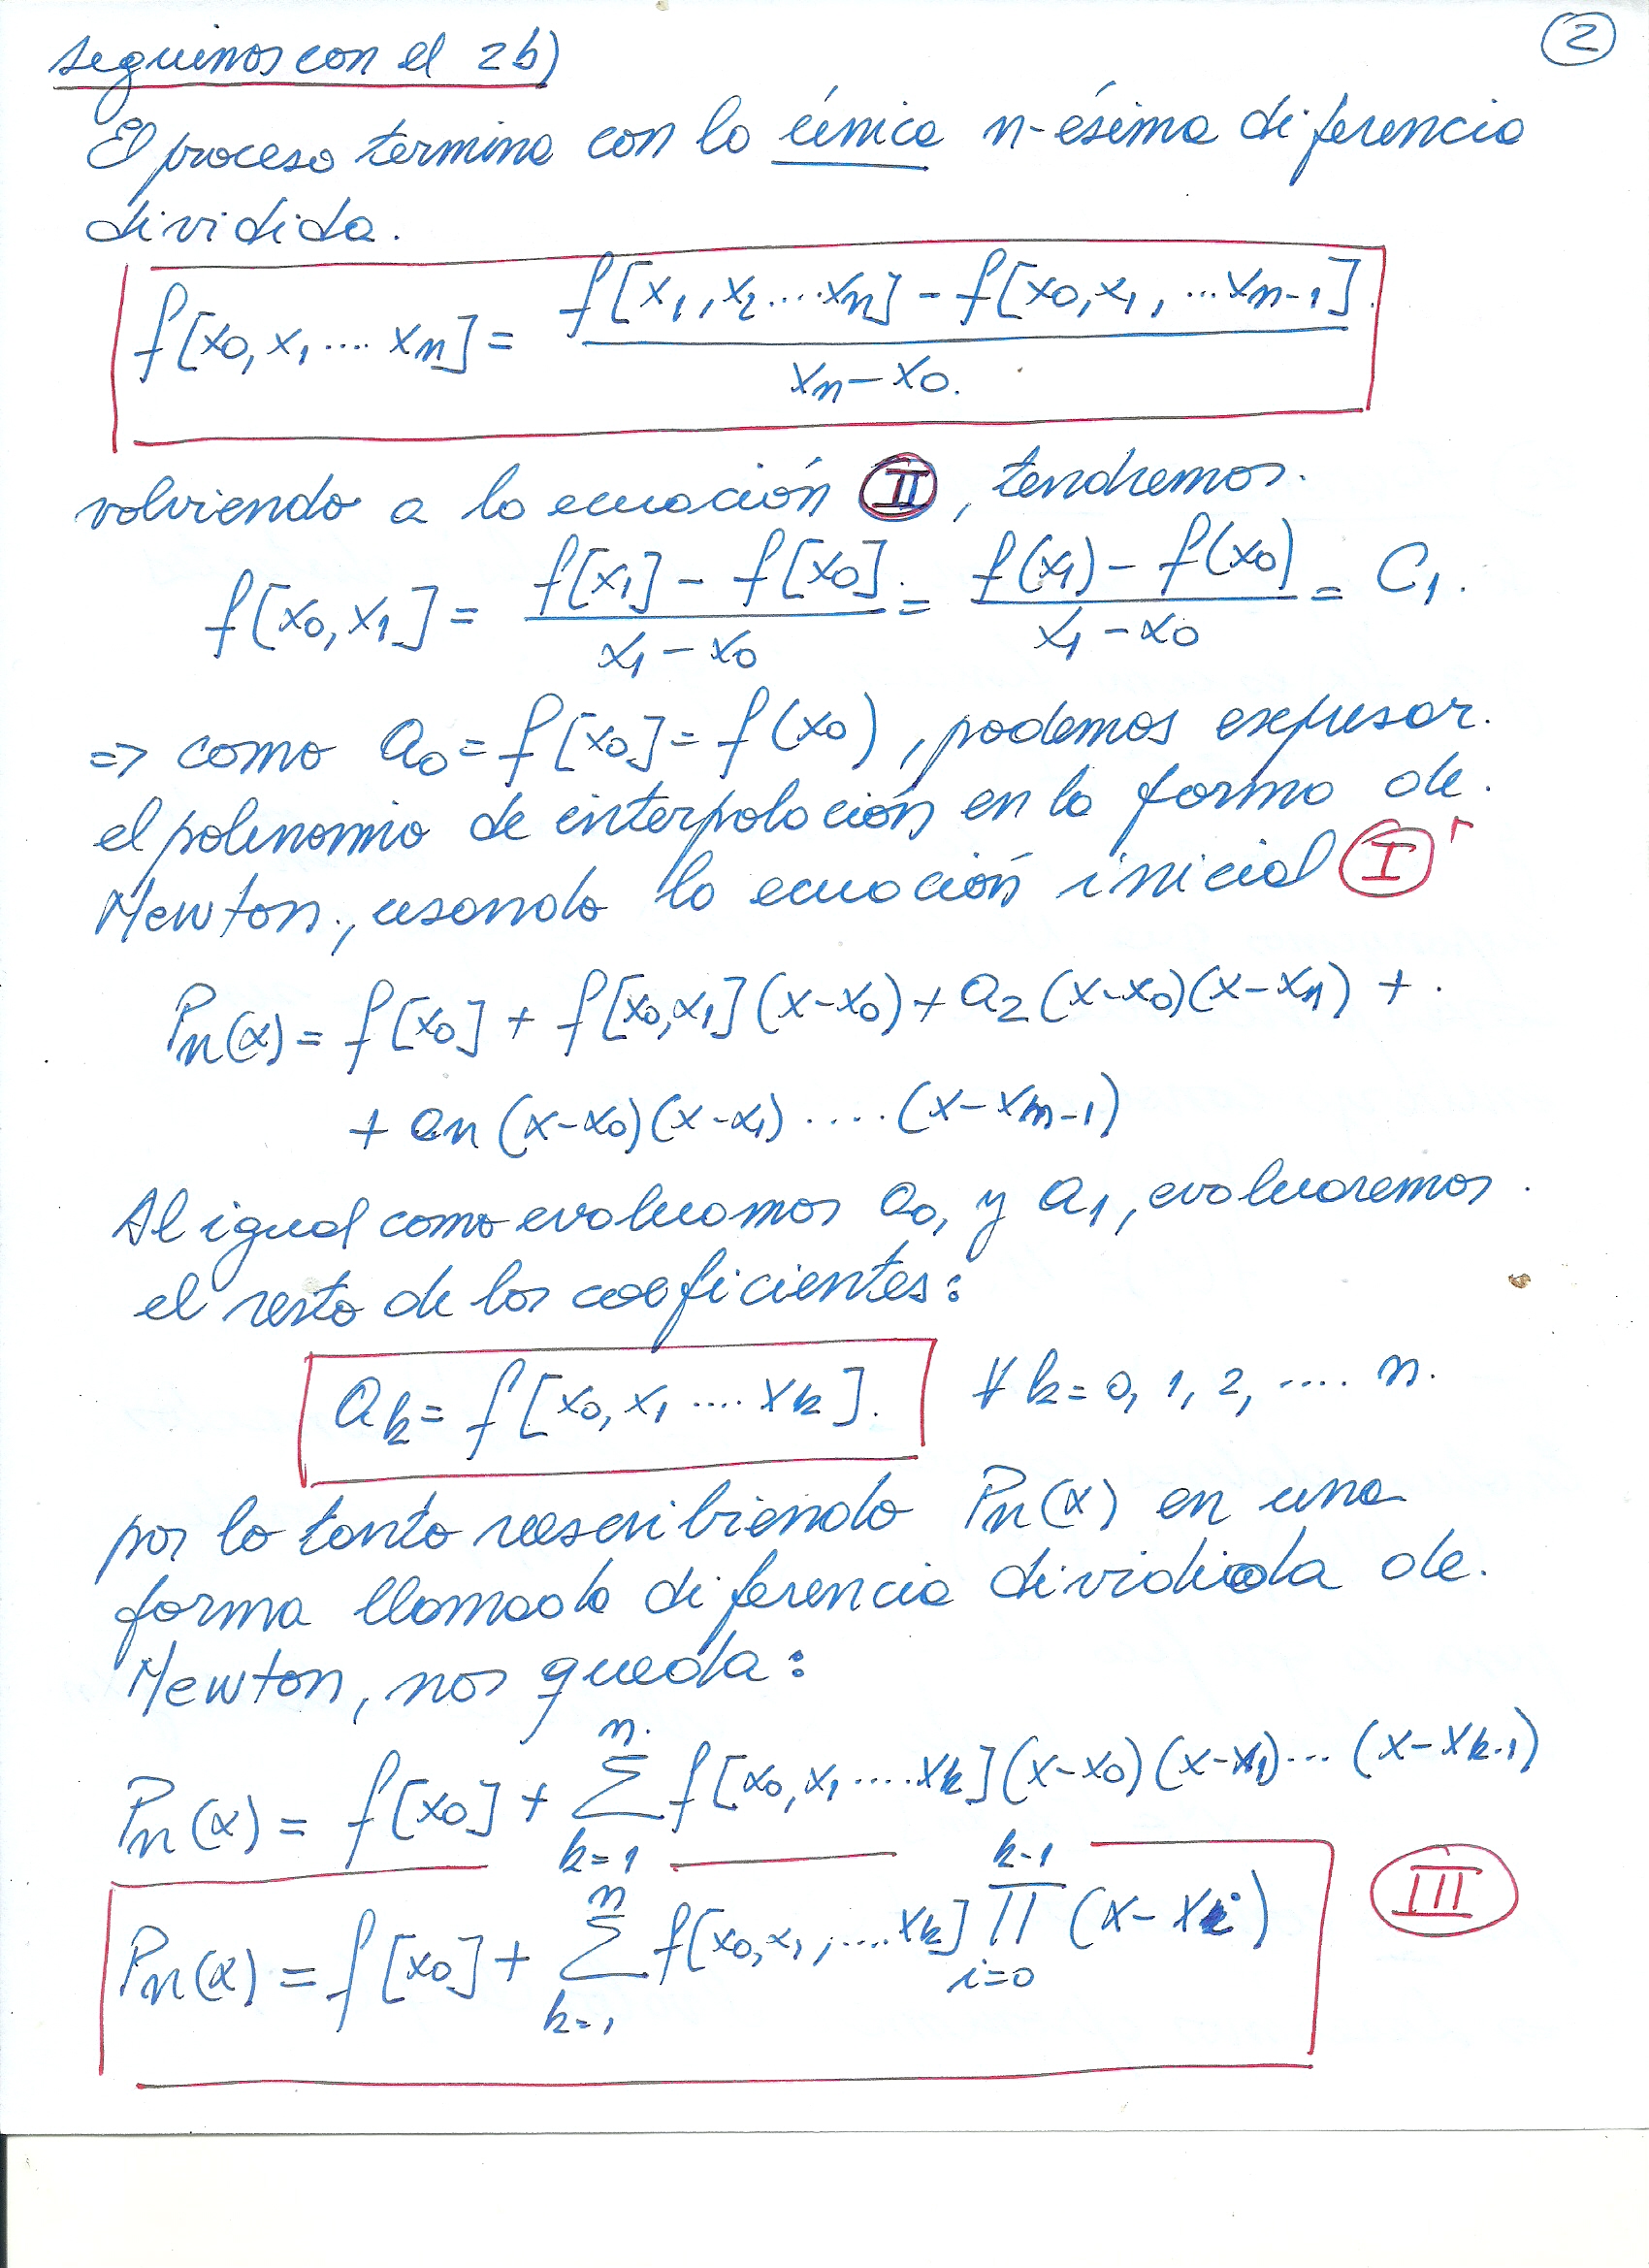 seguimos con el 2b)
2
El proceso termina con la única n-ésima diferencia
dividida.
f[x0, x1 .... xn] = (f[x1, x2 .... xn] - f[x0, x1, ... xn-1]) / (xn - x0)
volviendo a la ecuación II, tendremos.
f[x0, x1] = (f[x1] - f[x0]) / (x1 - x0) = (f(x1) - f(x0)) / (x1 - x0) = C1.
=> como a0 = f[x0] = f(x0), podemos expresar
el polinomio de interpolación en la forma de
Newton, usando la ecuación inicial I
Pn(x) = f[x0] + f[x0, x1](x-x0) + a2(x-x0)(x-x1) +
+ an(x-x0)(x-x1) .... (x-xn-1)
Al igual como evaluamos a0, y a1, evaluaremos
el resto de los coeficientes:
ak = f[x0, x1 .... xk]. ∀ k = 0, 1, 2, .... n.
por lo tanto reescribiendo Pn(x) en una
forma llamada diferencia dividida de
Newton, nos queda:
Pn(x) = f[x0] + Σ(k=1, n) f[x0, x1 .... xk](x-x0)(x-x1)...(x-xk-1)
Pn(x) = f[x0] + Σ(k=1, n) f[x0, x1, .... xk] Π(i=0, k-1) (x-xi) III